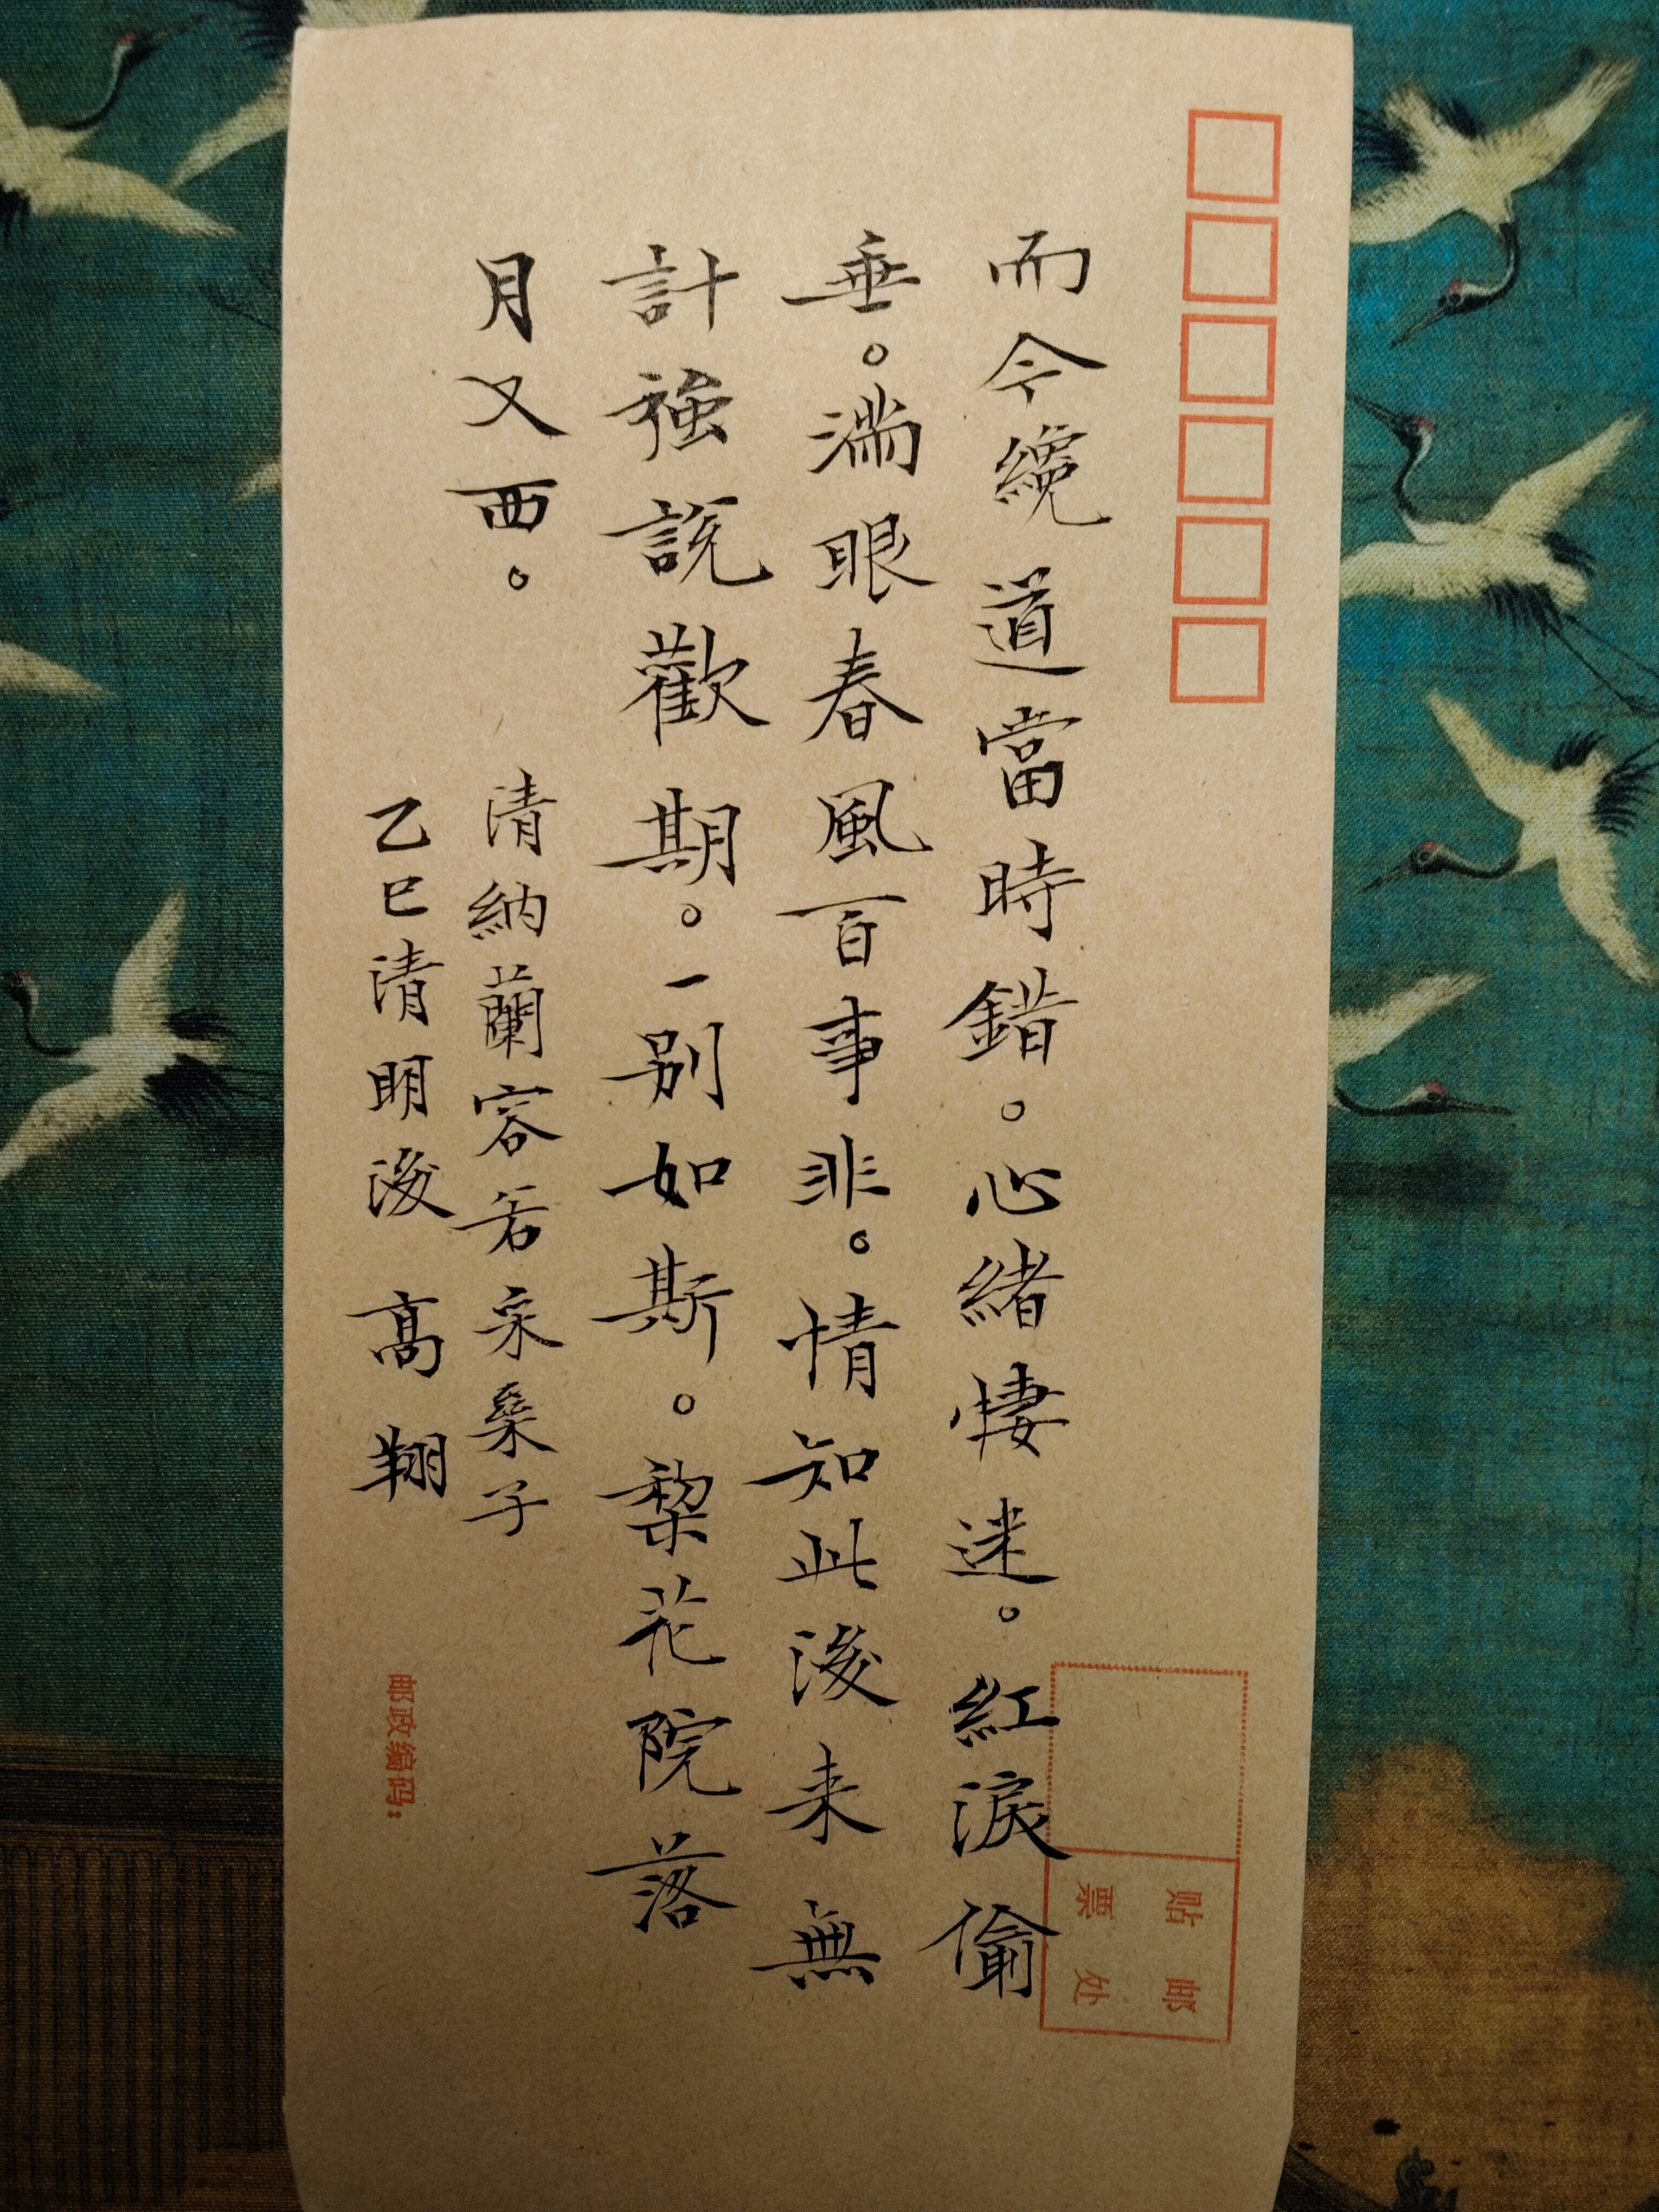 而今纔道當時錯。心緒悽迷。紅淚偷
垂。滿眼春風百事非。情知此後来無
計強說歡期。一别如斯。棃花院落
月又西。
清納蘭容若采桑子
乙巳清明後 高翔
贴邮
票处
邮政编码: